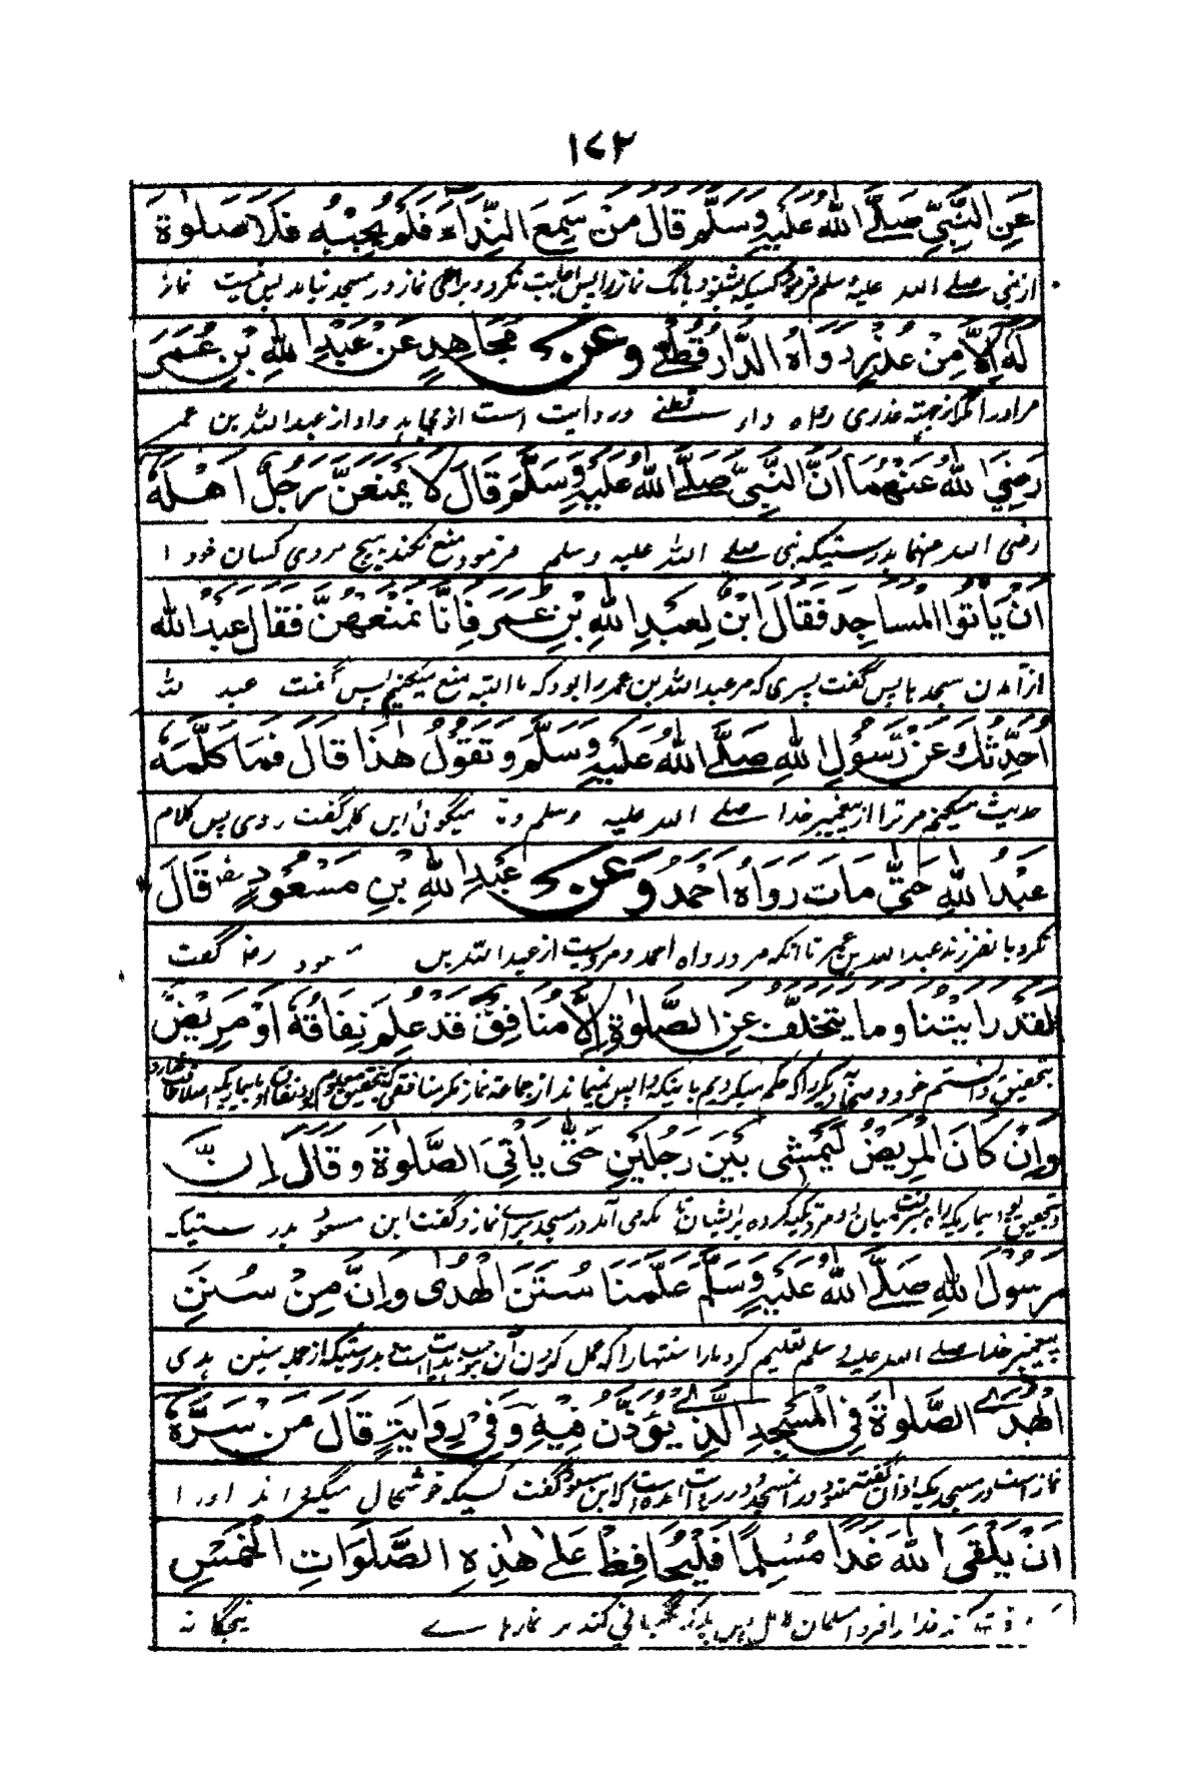 ١٧٢
عَنِ النَّبِيِّ صَلَّى اللهُ عَلَيْهِ وَسَلَّمَ قَالَ مَنْ سَمِعَ النِّدَآءَ فَلَمْ يُجِبْهُ فَلَا صَلٰوةَ
از نبی صلے اللہ علیہ وسلم فرمود کسیکہ بشنود بانگ نماز را پس اجابت نکرد و برای نماز در مسجد نیاید پس نیست نماز
لَهٗ اِلَّا مِنْ عُذْرٍ رَوَاهُ الدَّارُقُطْنِيُّ وَعَنْ مُجَاهِدٍ عَنْ عَبْدِ اللهِ بْنِ عُمَرَ
مر او را مگر از جهته عذری رواه دار قطنے و روایت است از مجاهد و او از عبد اللہ بن عمر
رَضِيَ اللهُ عَنْهُمَا اَنَّ النَّبِيَّ صَلَّى اللهُ عَلَيْهِ وَسَلَّمَ قَالَ لَا يَمْنَعَنَّ رَجُلٌ اَهْلَهٗ
رضی اللہ عنهما بدرستیکہ نبی صلے اللہ علیہ وسلم فرمود منع نکند هیچ مردی کسان خود ا
اَنْ يَّاْتُوا الْمَسَاجِدَ فَقَالَ ابْنٌ لِعَبْدِ اللهِ بْنِ عُمَرَ فَاِنَّا نَمْنَعُهُنَّ فَقَالَ عَبْدُ اللهِ
از آمدن مسجد ها پس گفت پسری کہ مر عبد اللہ بن عمر را بود کہ ما البتہ منع میکنیم پس گفت عبد للہ
اُحَدِّثُكَ عَنْ رَّسُولِ اللهِ صَلَّى اللهُ عَلَيْهِ وَسَلَّمَ وَتَقُوْلُ هٰذَا قَالَ فَمَا كَلَّمَهٗ
حدیث میکنم مر ترا از پیغمبر خدا صلے اللہ علیہ وسلم و تو میگوئی این کلمہ گفت روی پس کلام
عَبْدُ اللهِ حَتّٰى مَاتَ رَوَاهُ اَحْمَدُ وَعَنْ عَبْدِ اللهِ بْنِ مَسْعُوْدٍ رض قَالَ
نکرد با فرزند عبد اللہ بن عمر تا آنکہ مرد رواه احمد و مرویست از عبد اللہ بن مسعود رض گفت
لَقَدْ رَاَيْتُنَا وَمَا يَتَخَلَّفُ عَنِ الصَّلٰوةِ اِلَّا مُنَافِقٌ قَدْ عُلِمَ نِفَاقُهٗ اَوْ مَرِيْضٌ
بتحقیق دانستم خود و صحابہ دیگر را کہ حکم میکردیم باینکہ واپس نمیماند از جماعہ نماز مگر منافقی کہ بتحقیق معلوم بود نفاق او یا بیماریکہ
وَاِنْ كَانَ الْمَرِيْضُ لَيَمْشِي بَيْنَ رَجُلَيْنِ حَتّٰى يَاْتِيَ الصَّلٰوةَ وَقَالَ اِنَّ
و بتحقیق بود بیماریکہ راه میرفت میان دو مرد تکیہ کرده بر ایشان تا کہ می آمد در مسجد برای نماز و گفت ابن مسعود بدر ستیکہ
رَسُوْلَ اللهِ صَلَّى اللهُ عَلَيْهِ وَسَلَّمَ عَلَّمَنَا سُنَنَ الْهُدٰى وَاِنَّ مِنْ سُنَنِ
پیغمبر خدا صلے اللہ علیہ وسلم تعلیم کرد مارا سنتهارا کہ عمل کردن آن موجب هدایت است و بدرستیکہ از جملہ سنین هدی
الْهُدٰى الصَّلٰوةَ فِي الْمَسْجِدِ الَّذِيْ يُؤَذَّنُ فِيْهِ وَفِيْ رِوَايَةٍ قَالَ مَنْ سَرَّهٗ
نماز است در مسجدیکہ اذان گفتہ میشود در ان مسجد و در روایت آمده است کہ ابن مسعود گفت کسیکہ خوشحال میگرداند او را
اَنْ يَلْقَى اللهَ غَدًا مُسْلِمًا فَلْيُحَافِظْ عَلٰى هٰذِهِ الصَّلَوَاتِ الْخَمْسِ
خدا را فردا مسلمان کامل پس باید کہ نگهبانی کند بر نمازها ے پنجگانہ